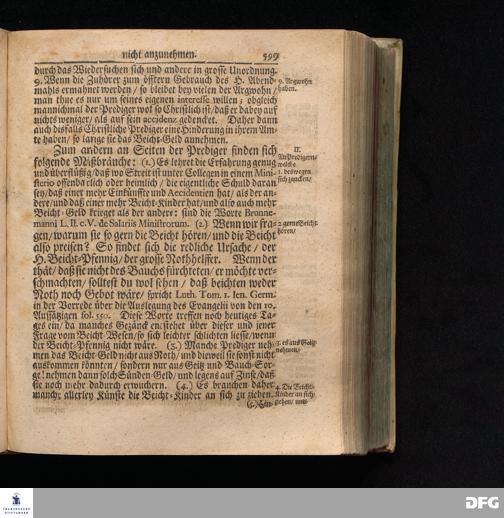 nicht anzunehmen. 599
durch das Wiedersuchen sich und andere in grosse Unordnung.
9. Wenn die Zuhörer zum öfftern Gebrauch des H. Abend-
mahls ermahnet werden / so bleibet bey vielen der Argwohn /
man thue es nur um seines eigenen interesse willen; obgleich
mannichmal der Prediger wol so Christlich ist / daß er dabey auf
nichts weniger / als auf sein accidenz gedencket. Daher dann
auch disfalls Christliche Prediger eine Hinderung in ihrem Am-
te haben / so lange sie das Beicht-Geld annehmen.
9. Argwohn
haben.
Zum andern an Seiten der Prediger finden sich
folgende Mißbräuche: (1.) Es lehret die Erfahrung genug
und überflüßig / daß wo Streit ist unter Collegen in einem Mini-
sterio offenbarlich oder heimlich / die eigentliche Schuld daran
sey / daß einer mehr Einkünffte und Accidentien hat / als der an-
dere / und daß einer mehr Beicht-Kinder hat / und also auch mehr
Beicht-Geld krieget als der andere: sind die Worte Brunne-
manni L. II. c. V. de Salariis Ministrorum. (2.) Wenn wir fra-
gen / warum sie so gern die Beicht hören / und die Beicht
also preisen? So findet sich die redliche Ursache / der
H. Beicht-Pfennig / der grosse Nothhelffer. Wenn der
thät / daß sie nicht des Bauchs fürchteten / er möchte ver-
schmachten / solltest du wol sehen / daß beichten weder
Noth noch Gebot wäre / spricht Luth. Tom. 1. Ien. Germ.
in der Vorrede über die Auslegung des Evangelii von den 10.
Aussätzigen fol. 550. Diese Worte treffen noch heutiges Ta-
ges ein / da manches Gezänck entstehet über dieser und jener
Frage vom Beicht-Wesen / so sich leichter schlichten liesse / wenn
der Beicht-Pfennig nicht wäre. (3.) Manche Prediger neh-
men das Beicht-Geld nicht aus Noth / und dieweil sie sonst nicht
auskommen könnten / sondern nur aus Geitz und Bauch-Sor-
ge! nehmen dann solch Sünden-Geld / und legens auf Zinse / daß
sie noch mehr dadurch erwuchern. (4.) Es brauchen daher
manche allerley Künste die Beicht-Kinder an sich zu ziehen.
II.
An Predigern /
welche
1. deswegen
sich zancken /
2. gerne Beicht
hören /
3. es aus Geitz
nehmen /
4. Die Beicht-
Kinder an sich
ziehen / und
DFG